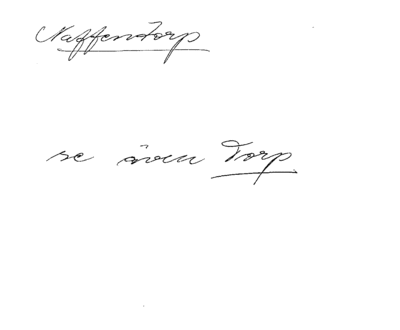 Naffentorp
se även Torp